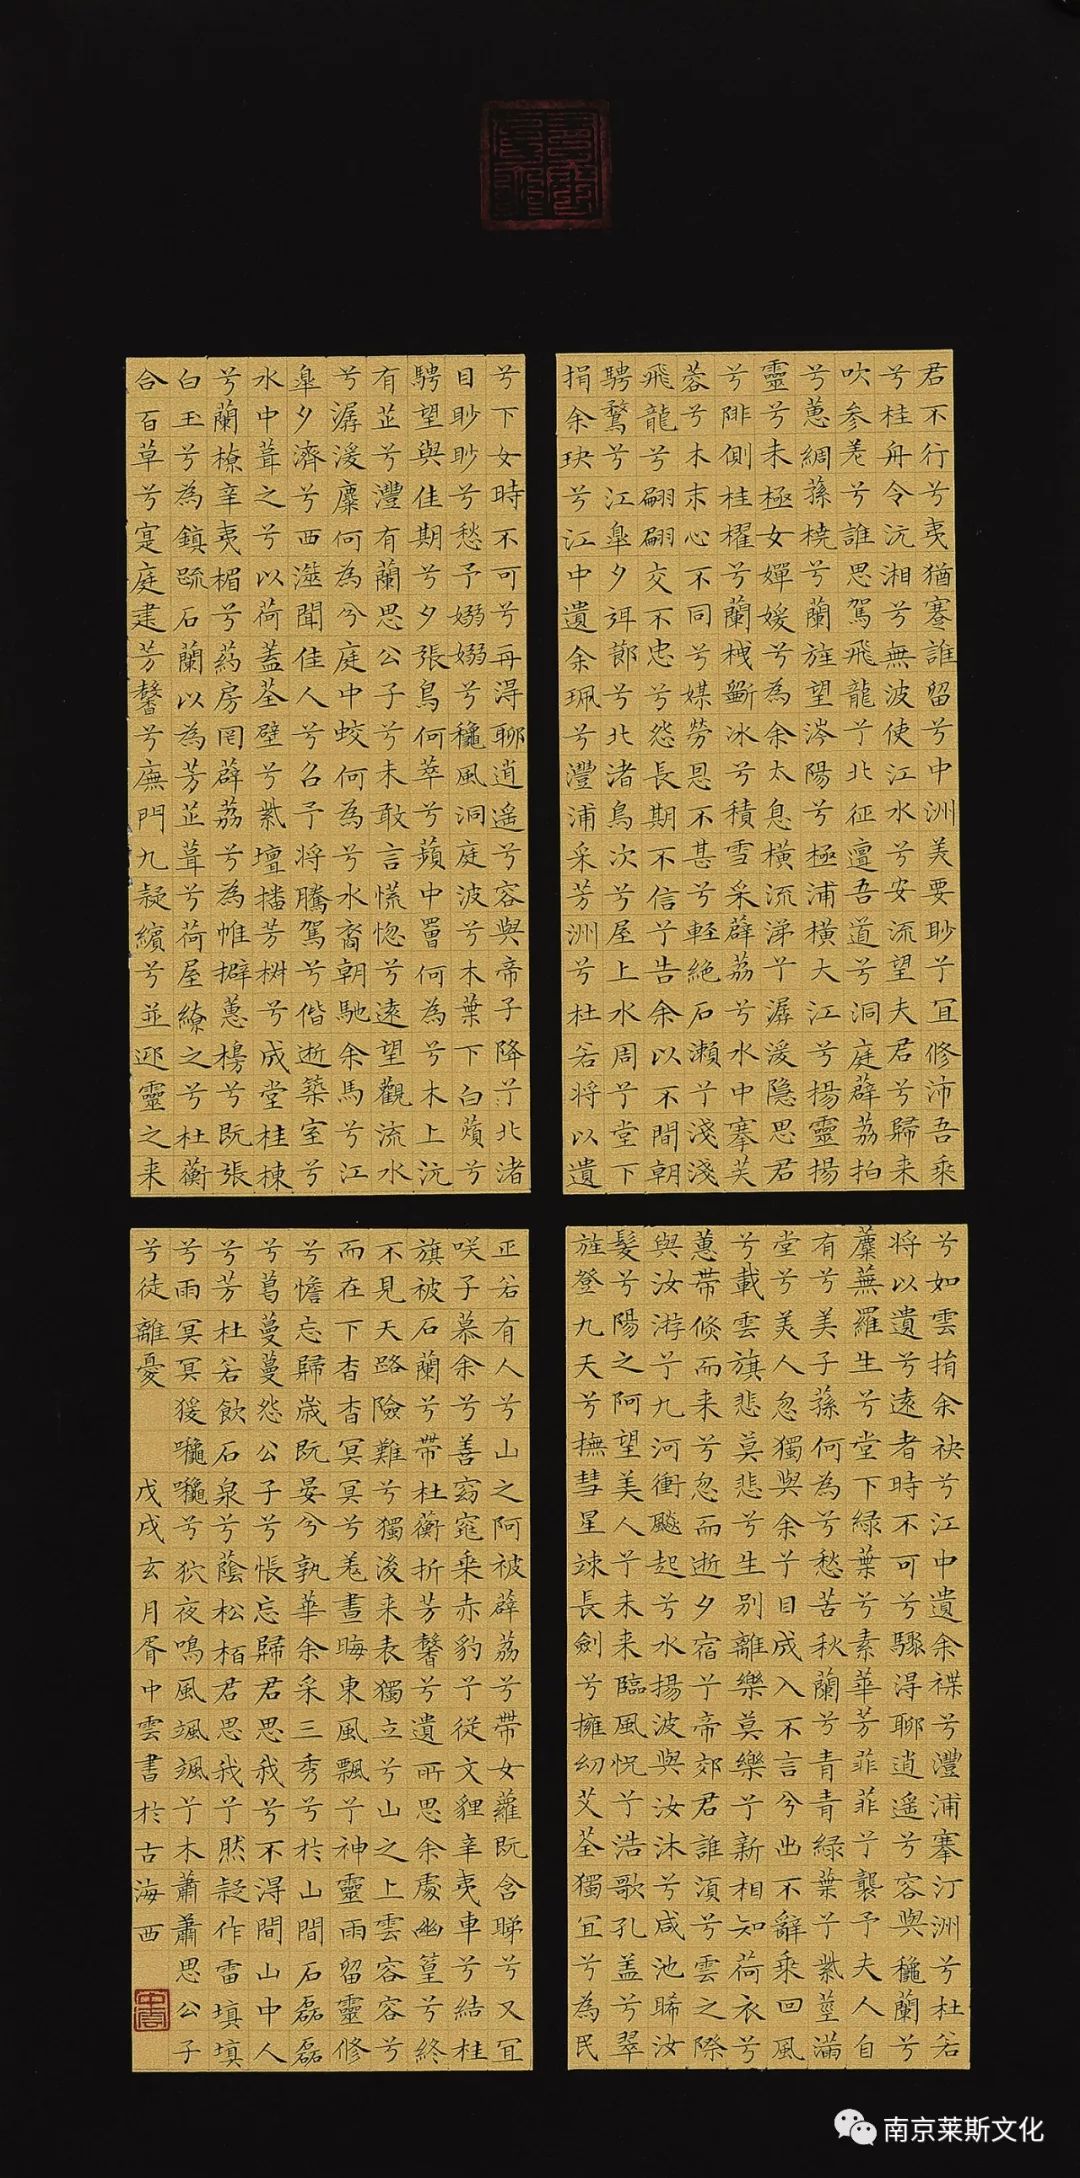 君不行兮夷猶蹇誰留兮中洲美要眇兮宜修沛吾乘
兮桂舟令沅湘兮無波使江水兮安流望夫君兮歸来
吹参差兮誰思駕飛龍兮北征邅吾道兮洞庭薜荔拍
兮蕙綢蓀橈兮蘭旌望涔陽兮極浦橫大江兮揚靈揚
靈兮未極女嬋媛兮為余太息橫流涕兮潺湲隐思君
兮陫側桂櫂兮蘭枻斲冰兮積雪采薜荔兮水中搴芙
蓉兮木末心不同兮媒勞恩不甚兮軽絕石瀨兮淺淺
飛龍兮翩翩交不忠兮怨長期不信兮告余以不間朝
騁騖兮江皐夕弭節兮北渚鳥次兮屋上水周兮堂下
捐余玦兮江中遺余珮兮灃浦采芳洲兮杜若将以遺
兮下女時不可兮再得聊逍遥兮容與帝子降兮北渚
目眇眇兮愁予嫋嫋兮龝風洞庭波兮木葉下白薠兮
騁望與佳期兮夕張鳥何萃兮蘋中罾何為兮木上沅
有芷兮灃有蘭思公子兮未敢言慌惚兮遠望觀流水
兮潺湲麋何為兮庭中蛟何為兮水裔朝馳余馬兮江
皐夕濟兮西澨聞佳人兮召予将騰駕兮偕逝築室兮
水中葺之兮以荷蓋荃壁兮紫壇播芳椒兮成堂桂棟
兮蘭橑辛夷楣兮药房罔薜荔兮為帷擗蕙櫋兮既張
白玉兮為鎮疏石蘭以為芳芷葺兮荷屋繚之兮杜蘅
合百草兮寔庭建芳馨兮廡門九疑繽兮並迎靈之来
兮如雲捐余袂兮江中遺余褋兮灃浦搴汀洲兮杜若
将以遺兮遠者時不可兮驟得聊逍遥兮容與龝蘭兮
麋蕪羅生兮堂下綠葉兮素華芳菲菲兮襲予夫人自
有兮美子蓀何為兮愁苦秋蘭兮青青綠葉兮紫莖滿
堂兮美人忽獨與余兮目成入不言兮出不辭乘回風
兮載雲旗悲莫悲兮生別離樂莫樂兮新相知荷衣兮
蕙帶倏而来兮忽而逝夕宿兮帝郊君誰須兮雲之際
與汝游兮九河衝飈起兮水揚波與汝沐兮咸池晞汝
髮兮陽之阿望美人兮未来臨風怳兮浩歌孔盖兮翠
旌登九天兮撫彗星竦長劍兮擁幼艾荃獨宜兮為民
正若有人兮山之阿被薜荔兮帶女蘿既含睇兮又宜
咲子慕余兮善窈窕乘赤豹兮従文貍辛夷車兮結桂
旗被石蘭兮帶杜蘅折芳馨兮遺所思余處幽篁兮終
不見天路險難兮獨後来表獨立兮山之上雲容容兮
而在下杳杳冥冥兮羌晝晦東風飄兮神靈雨留靈修
兮憺忘歸歲既晏兮孰華余采三秀兮於山間石磊磊
兮葛蔓蔓怨公子兮悵忘歸君思我兮不得間山中人
兮芳杜若飲石泉兮蔭松柏君思我兮然疑作雷填填
兮雨冥冥猨龝龝兮狖夜鳴風颯颯兮木蕭蕭思公子
兮徒離憂 戊戌玄月胥中雲書於古海西
中雲
南京莱斯文化